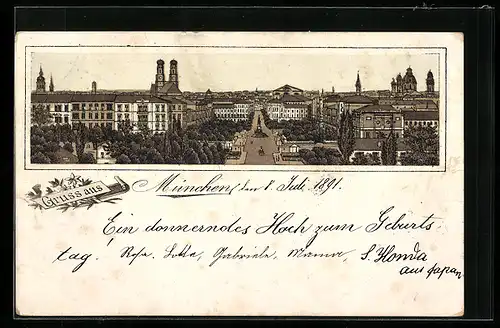 Gruss aus
München, den 1. Juli 1891.
Ein donnerndes Hoch zum Geburts-
tag! Rosa, Lotte, Gabriele, Mama, S. Honda
aus Japan.